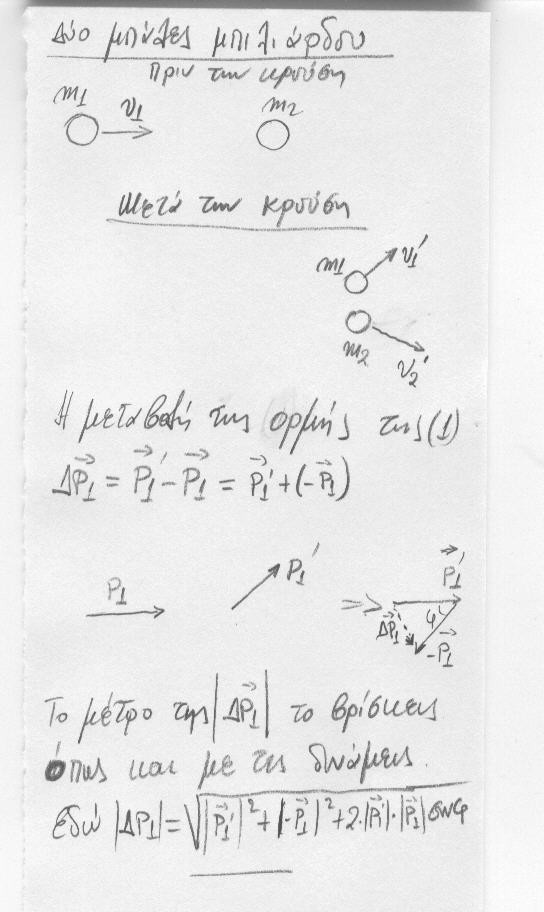 Δύο μπάλες μπιλιάρδου
Πριν την κρούση
m1 υ1 m2
Μετά την κρούση
m1 υ1'
m2 υ2'
Η μεταβολή της ορμής της (1)
ΔP⃗1 = P⃗1' - P⃗1 = P⃗1' + (-P⃗1)
P1 P1' => P⃗1' φ ΔP⃗1 -P⃗1
Το μέτρο της |ΔP⃗1| το βρίσκεις
όπως και με τις δυνάμεις.
Εδώ |ΔP1| = √|P⃗1'|² + |-P⃗1|² + 2·|P⃗1'|·|P⃗1| συνφ